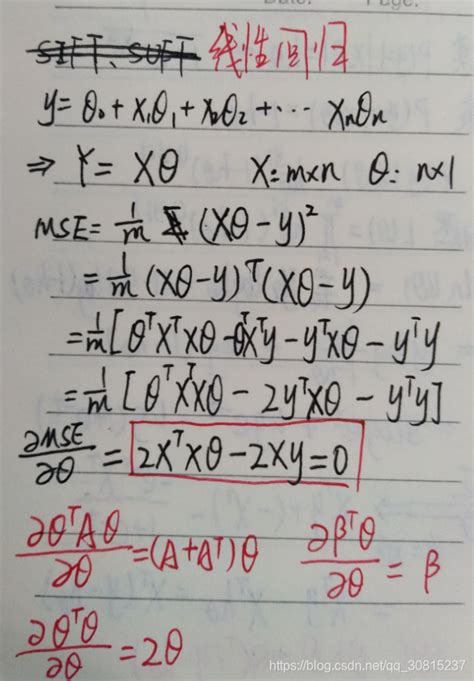 SIFT、SURF 线性回归
y = θ₀ + x₁θ₁ + x₂θ₂ + ⋯ xₙθₙ
⇒ Y = Xθ X: m×n θ: n×1
MSE = 1/m (Xθ - y)²
= 1/m (Xθ - y)ᵀ (Xθ - y)
= 1/m [ θᵀXᵀXθ - θᵀXᵀy - yᵀXθ - yᵀy
= 1/m [ θᵀXᵀXθ - 2yᵀXθ - yᵀy ]
∂MSE/∂θ = 2XᵀXθ - 2Xy = 0
∂θᵀAθ/∂θ = (A + Aᵀ)θ ∂βᵀθ/∂θ = β
∂θᵀθ/∂θ = 2θ
https://blog.csdn.net/qq_30815237